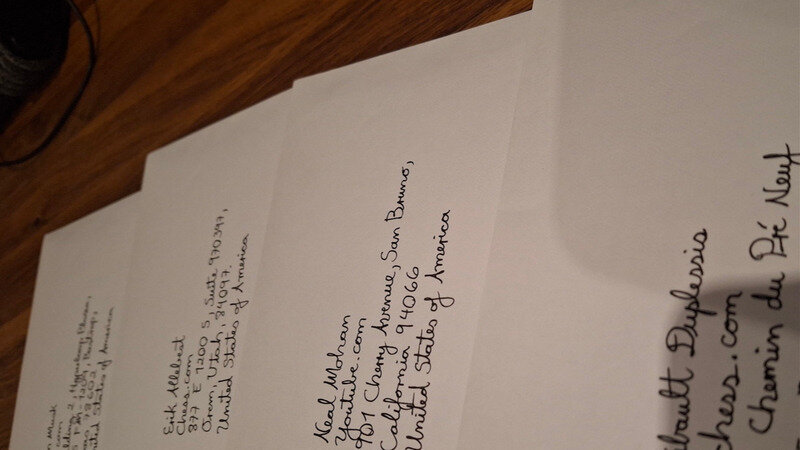 Musk
com
2
78602, Bastrop,
United States of America
Erik Allebest
Chess.com
877 E 1200 S, Suite 970397,
Orem, Utah, 84097.
United States of America
Neal Mohan
Youtube.com
901 Cherry Avenue, San Bruno,
California 94066
United States of America
ibault Duplessis
chess.com
Chemin du Pré Neuf